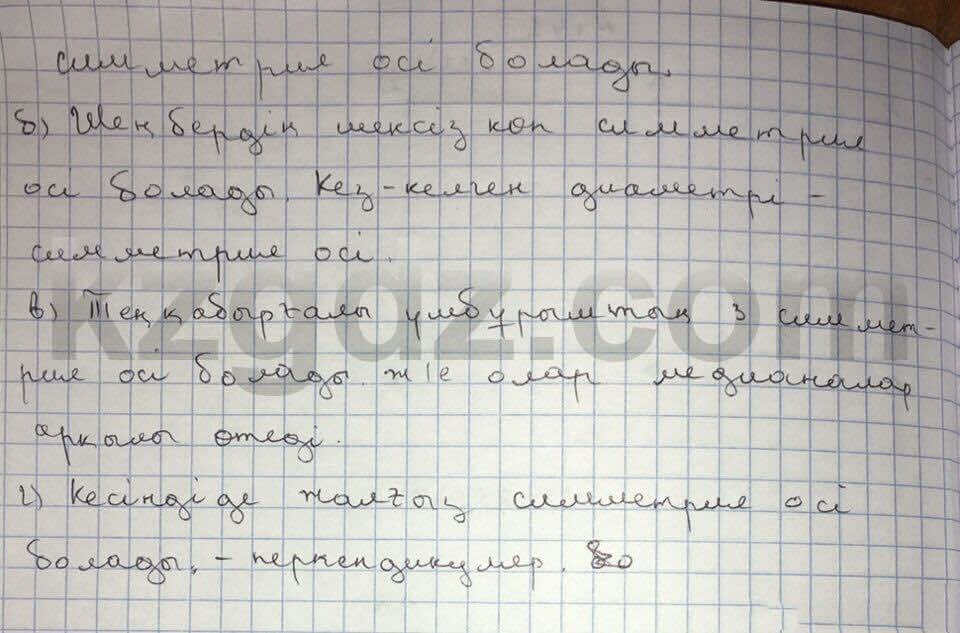 симметрия осі болады.
б) Шеңбердің шексіз көп симметрия
осі болады. Кез-келген диаметрі -
симметрия осі.
kzgdz.com
в) Тең қабырғалы үшбұрыштың 3 симмет-
рия осі болады. ж/е олар медианалар
арқылы өтеді.
г) Кесіндіде жалғыз симметрия осі
болады, - перпендикуляр.